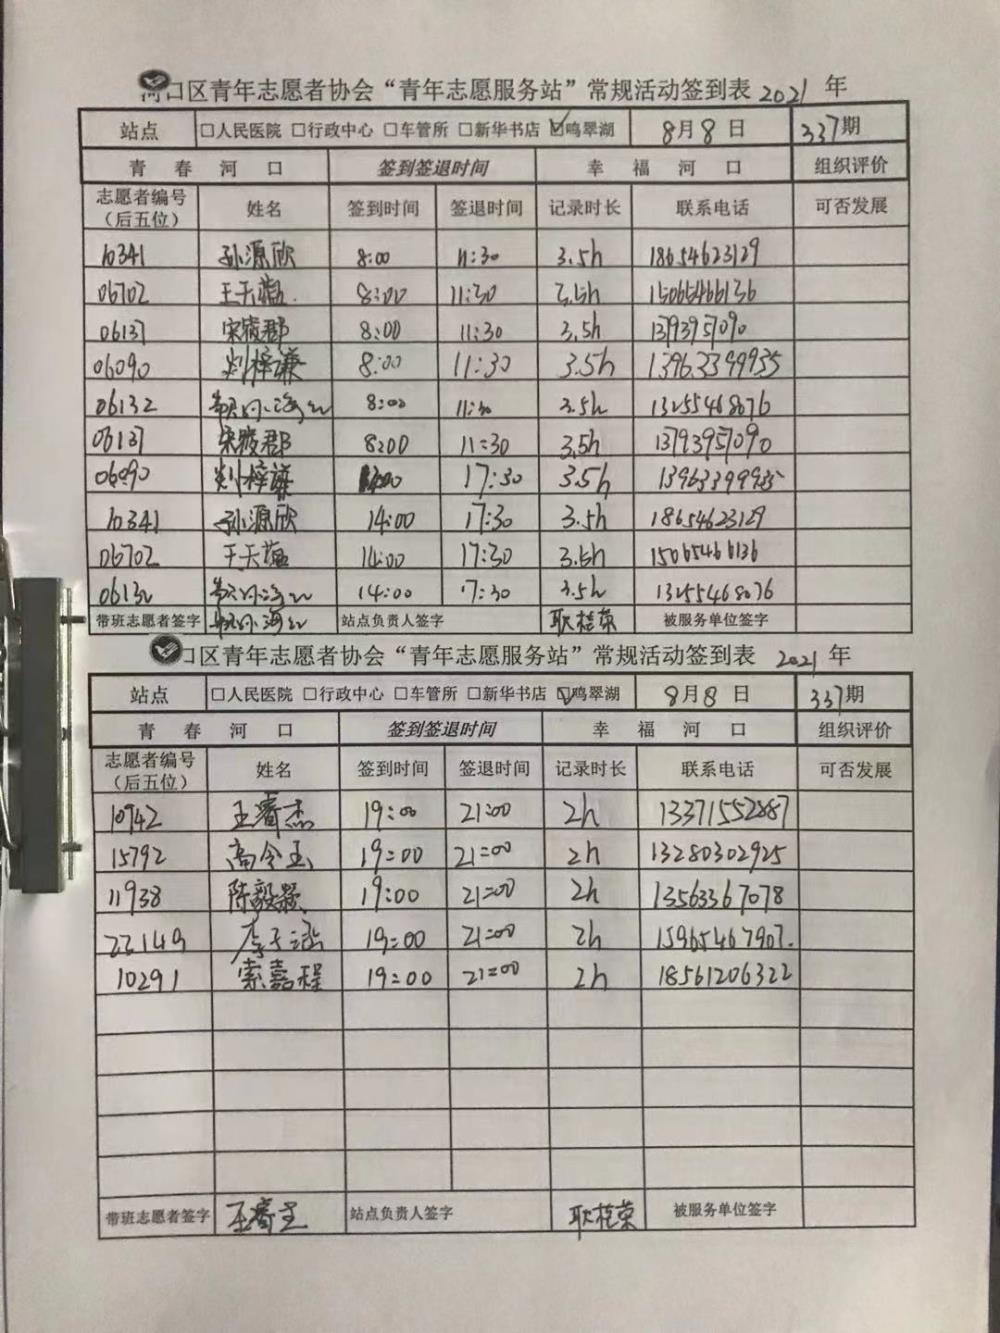 河口区青年志愿者协会“青年志愿服务站”常规活动签到表 2021 年
站点 □人民医院 □行政中心 □车管所 □新华书店 ☑鸣翠湖 8月8日 337期
青春河口 签到签退时间 幸福河口 组织评价
志愿者编号（后五位） 姓名 签到时间 签退时间 记录时长 联系电话 可否发展
10341 孙源欣 8:00 11:30 3.5h 18654623129
06702 王天蕴 8:00 11:30 3.5h 15065466136
06137 宋陵郡 8:00 11:30 3.5h 13793957090
06090 刘梓谦 8:00 11:30 3.5h 13963399935
06132 8:00 11:30 3.5h 13255468076
06137 宋陵郡 8:00 11:30 3.5h 13793957090
06090 刘梓谦 14:00 17:30 3.5h 13963399935
10341 孙源欣 14:00 17:30 3.5h 18654623129
06702 王天蕴 14:00 17:30 3.5h 15065466136
06132 14:00 17:30 3.5h 13255468076
带班志愿者签字 站点负责人签字 耿桂荣 被服务单位签字
口区青年志愿者协会“青年志愿服务站”常规活动签到表 2021 年
站点 □人民医院 □行政中心 □车管所 □新华书店 ☑鸣翠湖 8月8日 337期
青春河口 签到签退时间 幸福河口 组织评价
志愿者编号（后五位） 姓名 签到时间 签退时间 记录时长 联系电话 可否发展
10942 王睿杰 19:00 21:00 2h 13371552887
15792 高令玉 19:00 21:00 2h 13280302925
11938 陈毅颖 19:00 21:00 2h 13563367078
22149 李子涵 19:00 21:00 2h 15965467907.
10291 索嘉程 19:00 21:00 2h 18561206322
带班志愿者签字 王睿杰 站点负责人签字 耿桂荣 被服务单位签字